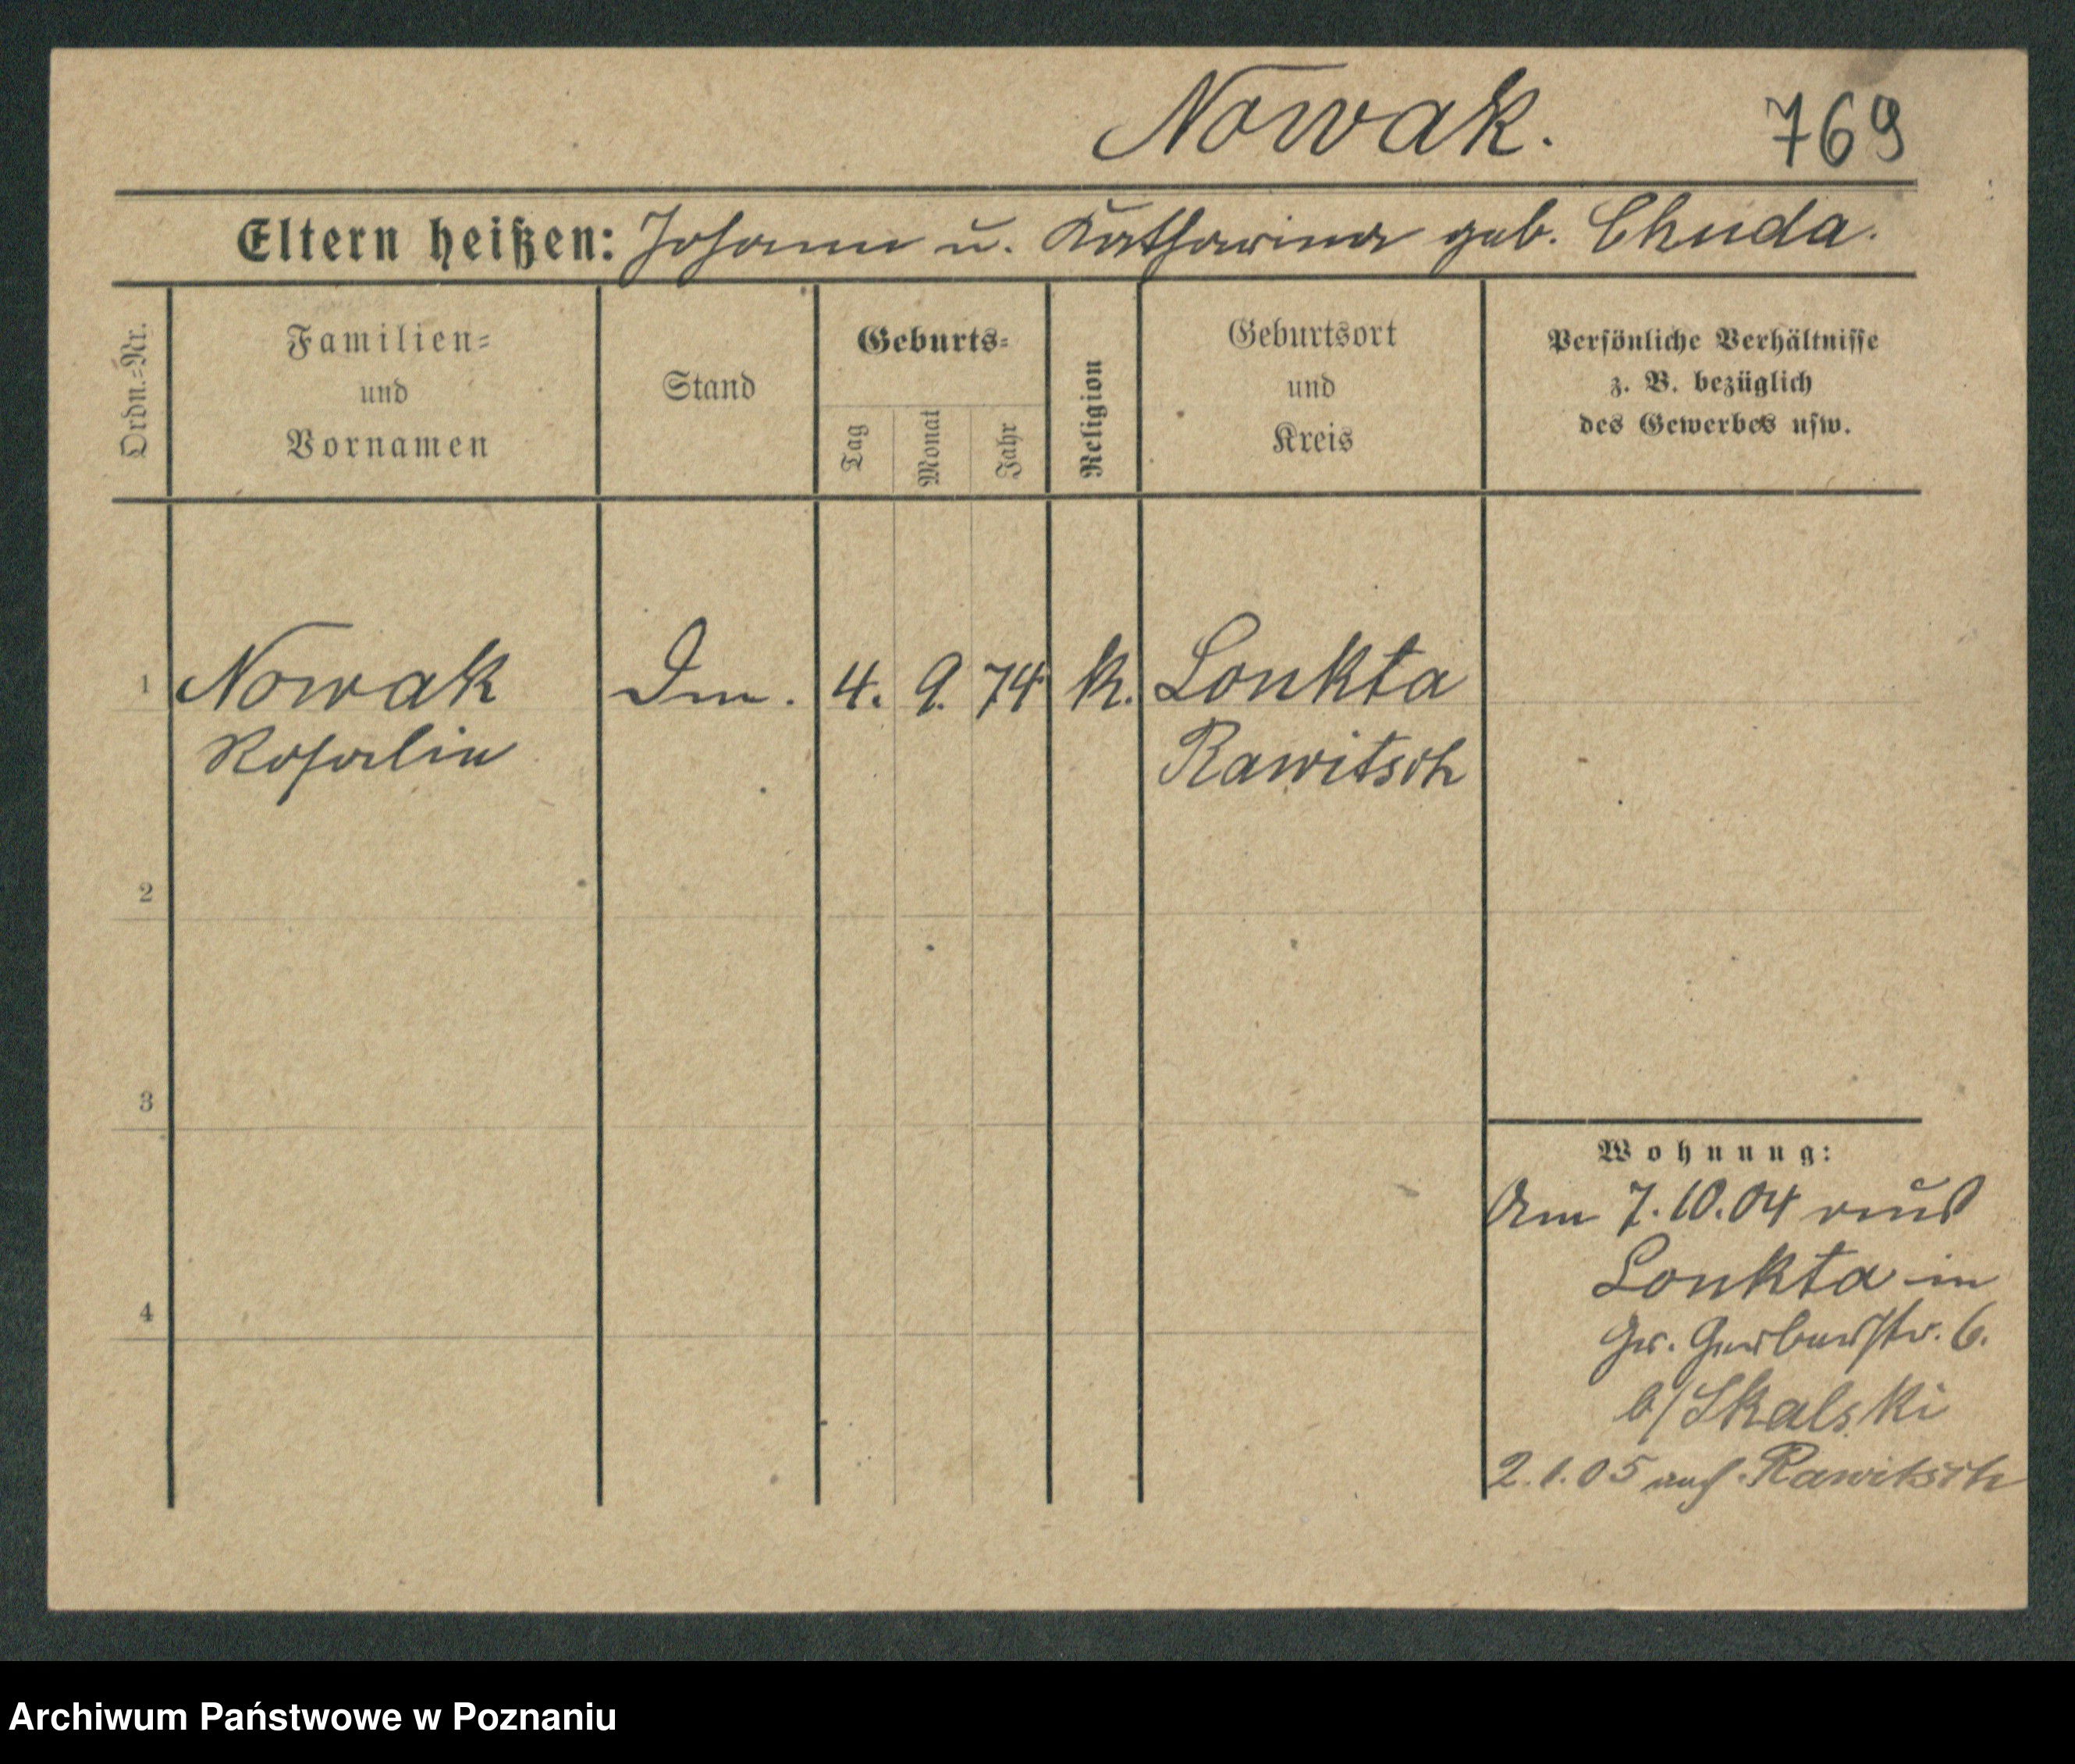 Nowak. 769
Eltern heißen: Johann u. Katharina geb. Chuda.
Ordn.=Nr.
Familien=
und
Vornamen
Stand
Geburts=
Tag
Monat
Jahr
Religion
Geburtsort
und
Kreis
Persönliche Verhältnisse
z. B. bezüglich
des Gewerbes usw.
1 Nowak 4. 9. 74 k. Lonkta
Rosalie Rawitsch
2
3
4
Wohnung:
Am 7.10.04 aus
Lonkta in
Gr. Gerberstr. 6.
b/Skalski
2.1.05 auf Rawitsch
Archiwum Państwowe w Poznaniu